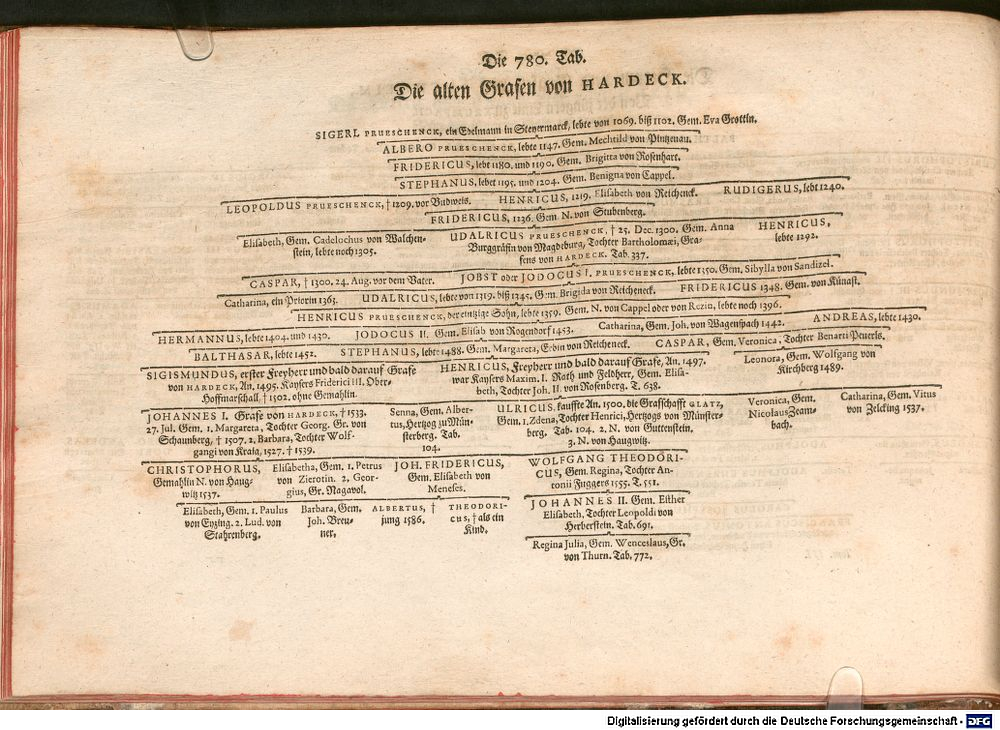 Die 780. Tab.
Die alten Grafen von HARDECK.
SIGERL PRUESCHENCK, ein Edelmann in Steyermarck, lebte von 1069. biß 1102. Gem. Eva Grottin.
ALBERO PRUESCHENCK, lebte 1147. Gem. Mechtild von Pintzenau.
FRIDERICUS, lebt 1180. und 1190. Gem. Brigitta von Rosenhart.
STEPHANUS, lebet 1195. und 1204. Gem. Benigna von Cappel.
LEOPOLDUS PRUESCHENCK, † 1209. vor Budweis. HENRICUS, 1219. Elisabeth von Reichenck. RUDIGERUS, lebt 1240.
FRIDERICUS, 1236. Gem. N. von Stubenberg.
Elisabeth, Gem. Cadelochus von Walchen-
stein, lebte noch 1305.
UDALRICUS PRUESCHENCK, † 25. Dec. 1300. Gem. Anna
Burggräffin von Magdeburg, Tochter Bartholomæi, Gra-
fens von HARDECK. Tab. 337.
HENRICUS,
lebte 1292.
CASPAR, † 1300. 24. Aug. vor dem Vater. JOBST oder JODOCUS I. PRUESCHENCK, lebte 1350. Gem. Sibylla von Sandizel.
Catharina, ein Priorin 1363. UDALRICUS, lebte von 1319. biß 1345. Gem. Brigida von Reicheneck. FRIDERICUS 1348. Gem. von Künast.
HENRICUS PRUESCHENCK, der eintzige Sohn, lebte 1359. Gem. N. von Cappel oder von Rezin, lebte noch 1396.
HERMANNUS, lebte 1404. und 1430. JODOCUS II. Gem. Elisab. von Rogendorf 1453. Catharina, Gem. Joh. von Wagenspach 1442. ANDREAS, lebte 1430.
BALTHASAR, lebte 1452. STEPHANUS, lebte 1488. Gem. Margareta, Erbin von Reicheneck. CASPAR, Gem. Veronica, Tochter Benarti Peuerls.
SIGISMUNDUS, erster Freyherr und bald darauf Grafe
von HARDECK, An. 1495. Kaysers Friderici III. Ober-
Hoffmarschall, † 1502. ohne Gemahlin.
HENRICUS, Freyherr und bald darauf Grafe, An. 1497.
war Kaysers Maxim. I. Rath und Feldherr, Gem. Elisa-
beth, Tochter Joh. II. von Rosenberg. T. 638.
Leonora, Gem. Wolfgang von
Kirchberg 1489.
JOHANNES I. Grafe von HARDECK, † 1533.
27. Jul. Gem. 1. Margareta, Tochter Georg. Gr. von
Schaunberg, † 1507. 2. Barbara, Tochter Wolf-
gangi von Kraia, 1527. † 1539.
Senna, Gem. Alber-
tus, Hertzog zu Mün-
sterberg. Tab.
104.
ULRICUS, kauffte An. 1500. die Grafschafft GLATZ,
Gem. 1. Zdena, Tochter Henrici, Hertzogs von Münster-
berg. Tab. 104. 2. N. von Guttenstein.
3. N. von Haugwitz.
Veronica, Gem.
Nicolaus Zeam-
bach.
Catharina, Gem. Vitus
von Zelcking 1537.
CHRISTOPHORUS,
Gemahlin N. von Haug-
witz 1537.
Elisabetha, Gem. 1. Petrus
von Zierotin. 2. Geor-
gius, Gr. Nagavol.
JOH. FRIDERICUS,
Gem. Elisabeth von
Meneses.
WOLFGANG THEODORI-
CUS, Gem. Regina, Tochter An-
tonii Fuggers 1555. T. 551.
Elisabeth, Gem. 1. Paulus
von Eyzing. 2. Lud. von
Stahrenberg.
Barbara, Gem.
Joh. Breu-
ner.
ALBERTUS, †
jung 1586.
THEODORI-
CUS, † als ein
Kind.
JOHANNES II. Gem. Esther
Elisabeth, Tochter Leopoldi von
Herberstein. Tab. 691.
Regina Julia, Gem. Wenceslaus, Gr.
von Thurn. Tab. 772.
Digitalisierung gefördert durch die Deutsche Forschungsgemeinschaft - DFG